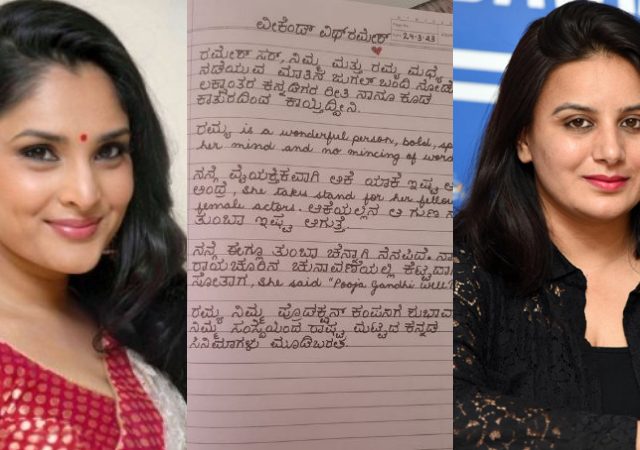 Date: 24-3-23
ವೀಕೆಂಡ್ ವಿಥ್ ರಮೇಶ್
ರಮೇಶ್ ಸರ್, ನಿಮ್ಮ ಮತ್ತು ರಮ್ಯ ಮಧ್ಯೆ
ನಡೆಯುವ ಮಾತಿನ ಜುಗಲ್ ಬಂದಿ ನೋಡಲ
ಲಕ್ಷಾಂತರ ಕನ್ನಡಿಗರ ರೀತಿ ನಾನೂ ಕೂಡ
ಕಾತುರದಿಂದ ಕಾಯ್ತಿದ್ದೀನಿ.
ರಮ್ಯ is a wonderful person, bold, sp
her mind and no mincing of word
ನನ್ನೆ ವೈಯಕ್ತಿಕವಾಗಿ ಆಕೆ ಯಾಕೆ ಇಷ್ಟ ಆ
ಅಂದ್ರೆ, she takes stand for her fellow
female actors. ಆಕೆಯಲ್ಲಿನ ಆ ಗುಣ ನ
ತುಂಬಾ ಇಷ್ಟ ಆಗುತ್ತೆ.
ನನ್ಗೆ ಈಗ್ಲೂ ತುಂಬಾ ಚೆನ್ನಾಗಿ ನೆನಪಿದೆ. ನಾ
ರಾಯಚೂರಿನ ಚುನಾವಣೆಯಲ್ಲಿ ಕೆಟ್ಟದಾ
ಸೋತಾಗ, she said "Pooja Gandhi will
ರಮ್ಯ ನಿಮ್ಮ ಪ್ರೊಡಕ್ಷನ್ ಕಂಪನಿಗೆ ಶುಭಾವ
ನಿಮ್ಮ ಸಂಸ್ಥೆಯಿಂದ ರಾಷ್ಟ್ರ ಮಟ್ಟದ ಕನ್ನಡ
ಸಿನಿಮಾಗಳು ಮೂಡಿಬರಲಿ.